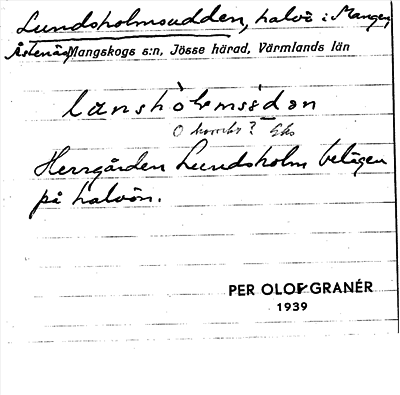 Lundsholmsudden, halvö i Mangen,
Årstenäs, Mangskogs s:n, Jösse härad, Värmlands län
lansholmssədən
O korrekt? Eko
Herrgården Lundsholm belägen
på halvön.
PER OLOF GRANÉR
1939